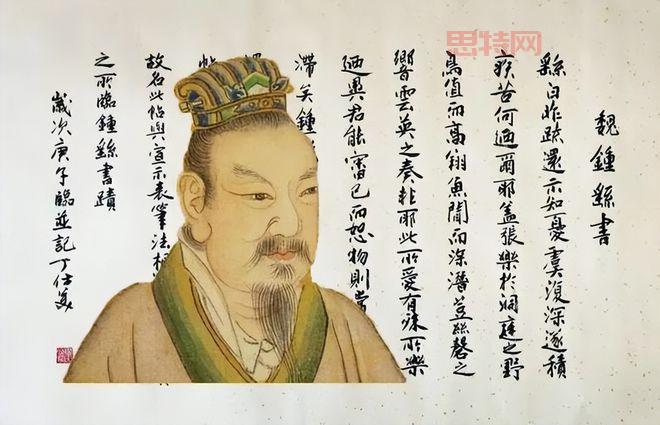 思特网
魏鍾繇書
繇白昨疏還示知憂虞復深遂積
疾苦何迺爾耶蓋張樂於洞庭之野
鳥值而高翔魚聞而深潛豈絲磬之
響雲英之奏非耶此所愛有殊所樂
迺異君能審己而恕物則
滯矣鍾
帖
故名此帖與宣示表筆法
之所臨鍾繇書蹟
歲次庚子臨並記丁仕美